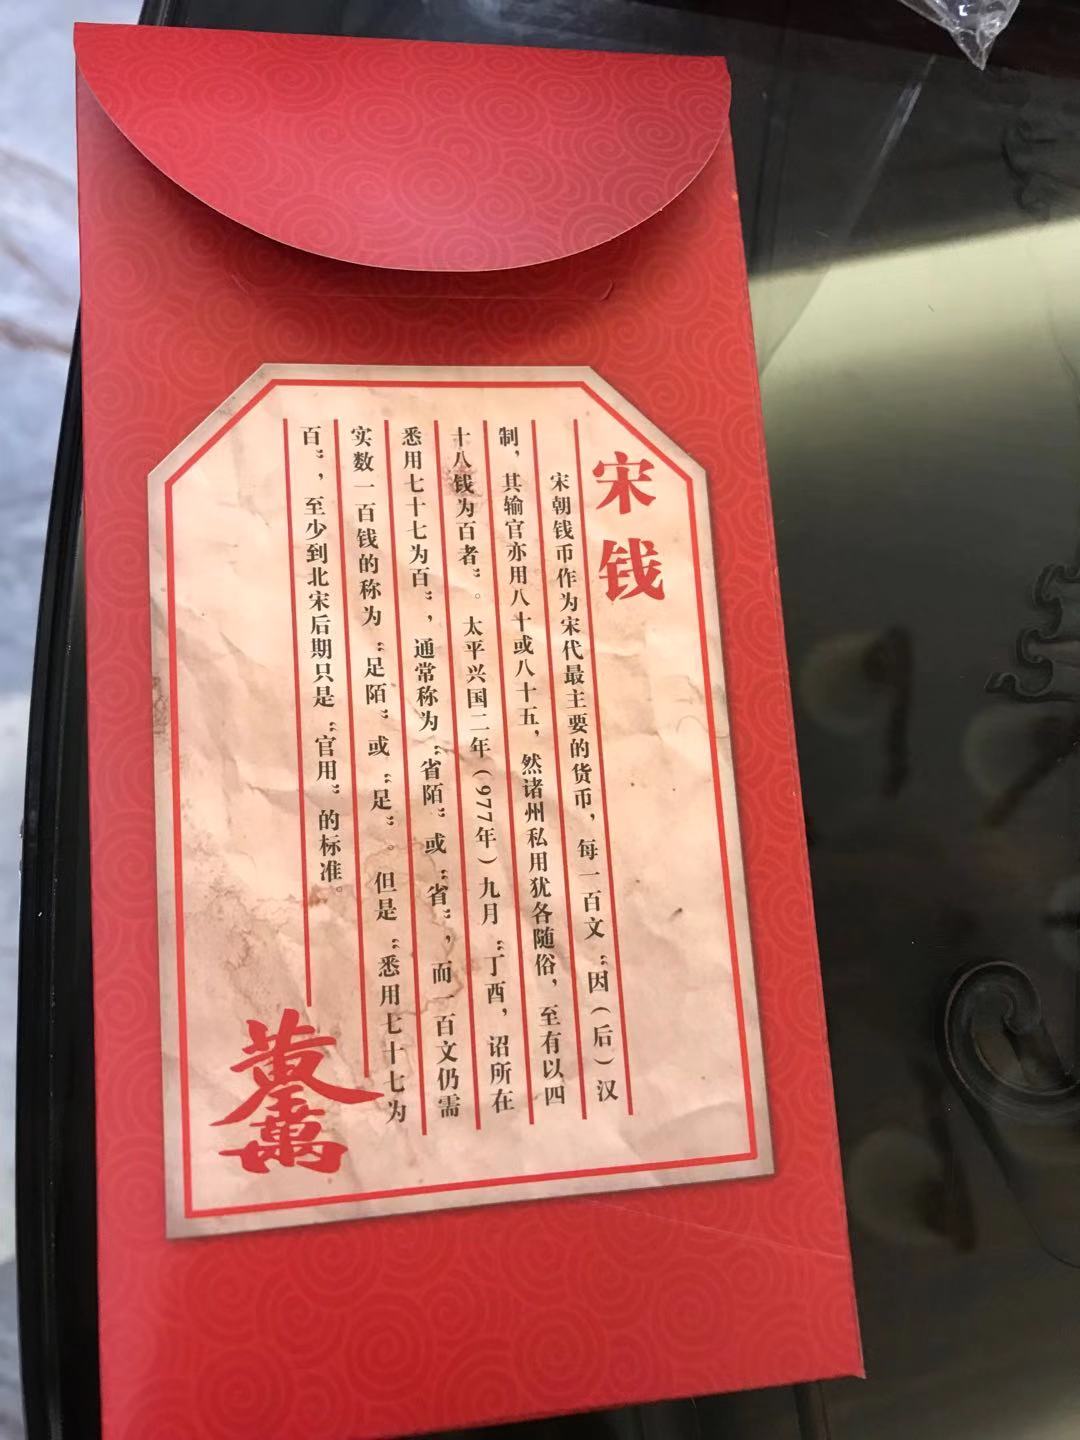 宋钱
宋朝钱币作为宋代最主要的货币，每一百文“因（后）汉
制，其输官亦用八十或八十五，然诸州私用犹各随俗，至有以四
十八钱为百者”。太平兴国二年（977年）九月“丁酉，诏所在
悉用七十七为百”，通常称为“省陌”或“省”，而一百文仍需
实数一百钱的称为“足陌”或“足”。但是“悉用七十七为
百”，至少到北宋后期只是“官用”的标准。